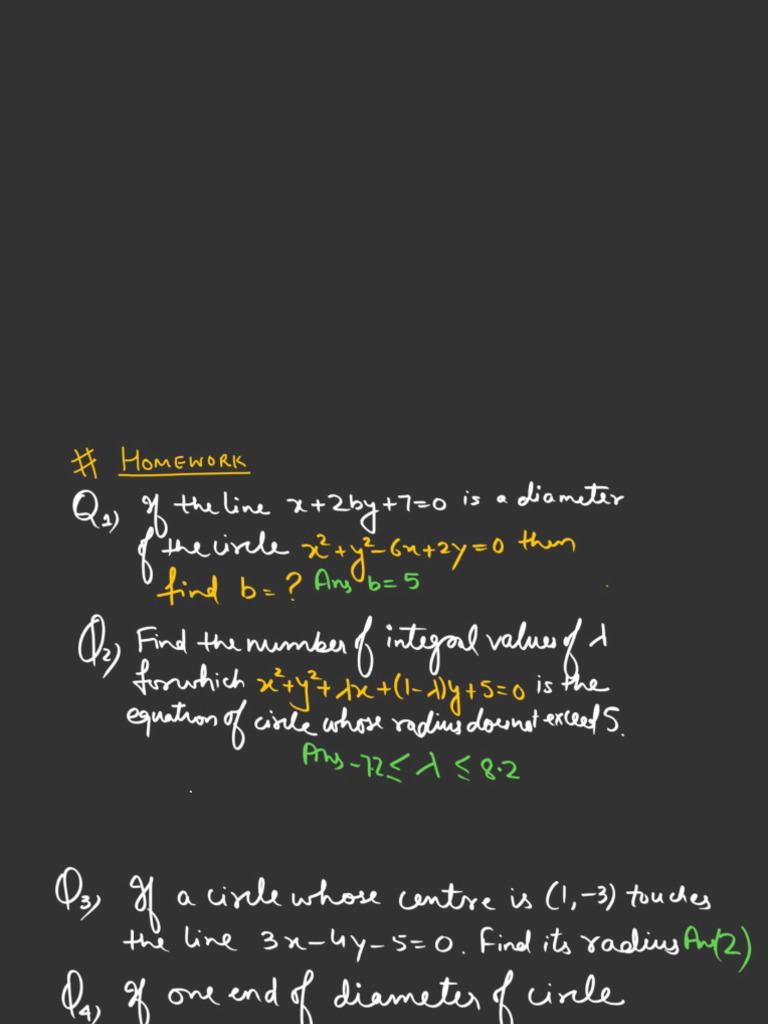 # HOMEWORK
Q1) If the line x+2by+7=0 is a diameter
of the circle x²+y²-6x+2y=0 then
find b=? Ans b=5
Q2) Find the number of integral values of λ
for which x²+y²+λx+(1-λ)y+5=0 is the
equation of circle whose radius does not exceed 5.
Ans -7.2 ≤ λ ≤ 8.2
Q3) If a circle whose centre is (1,-3) touches
the line 3x-4y-5=0. Find its radius Ans(2)
Q4) If one end of diameter of circle